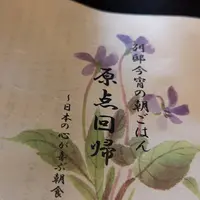 別邸今宵の朝ごはん
原点回帰
~日本の心が喜ぶ朝食